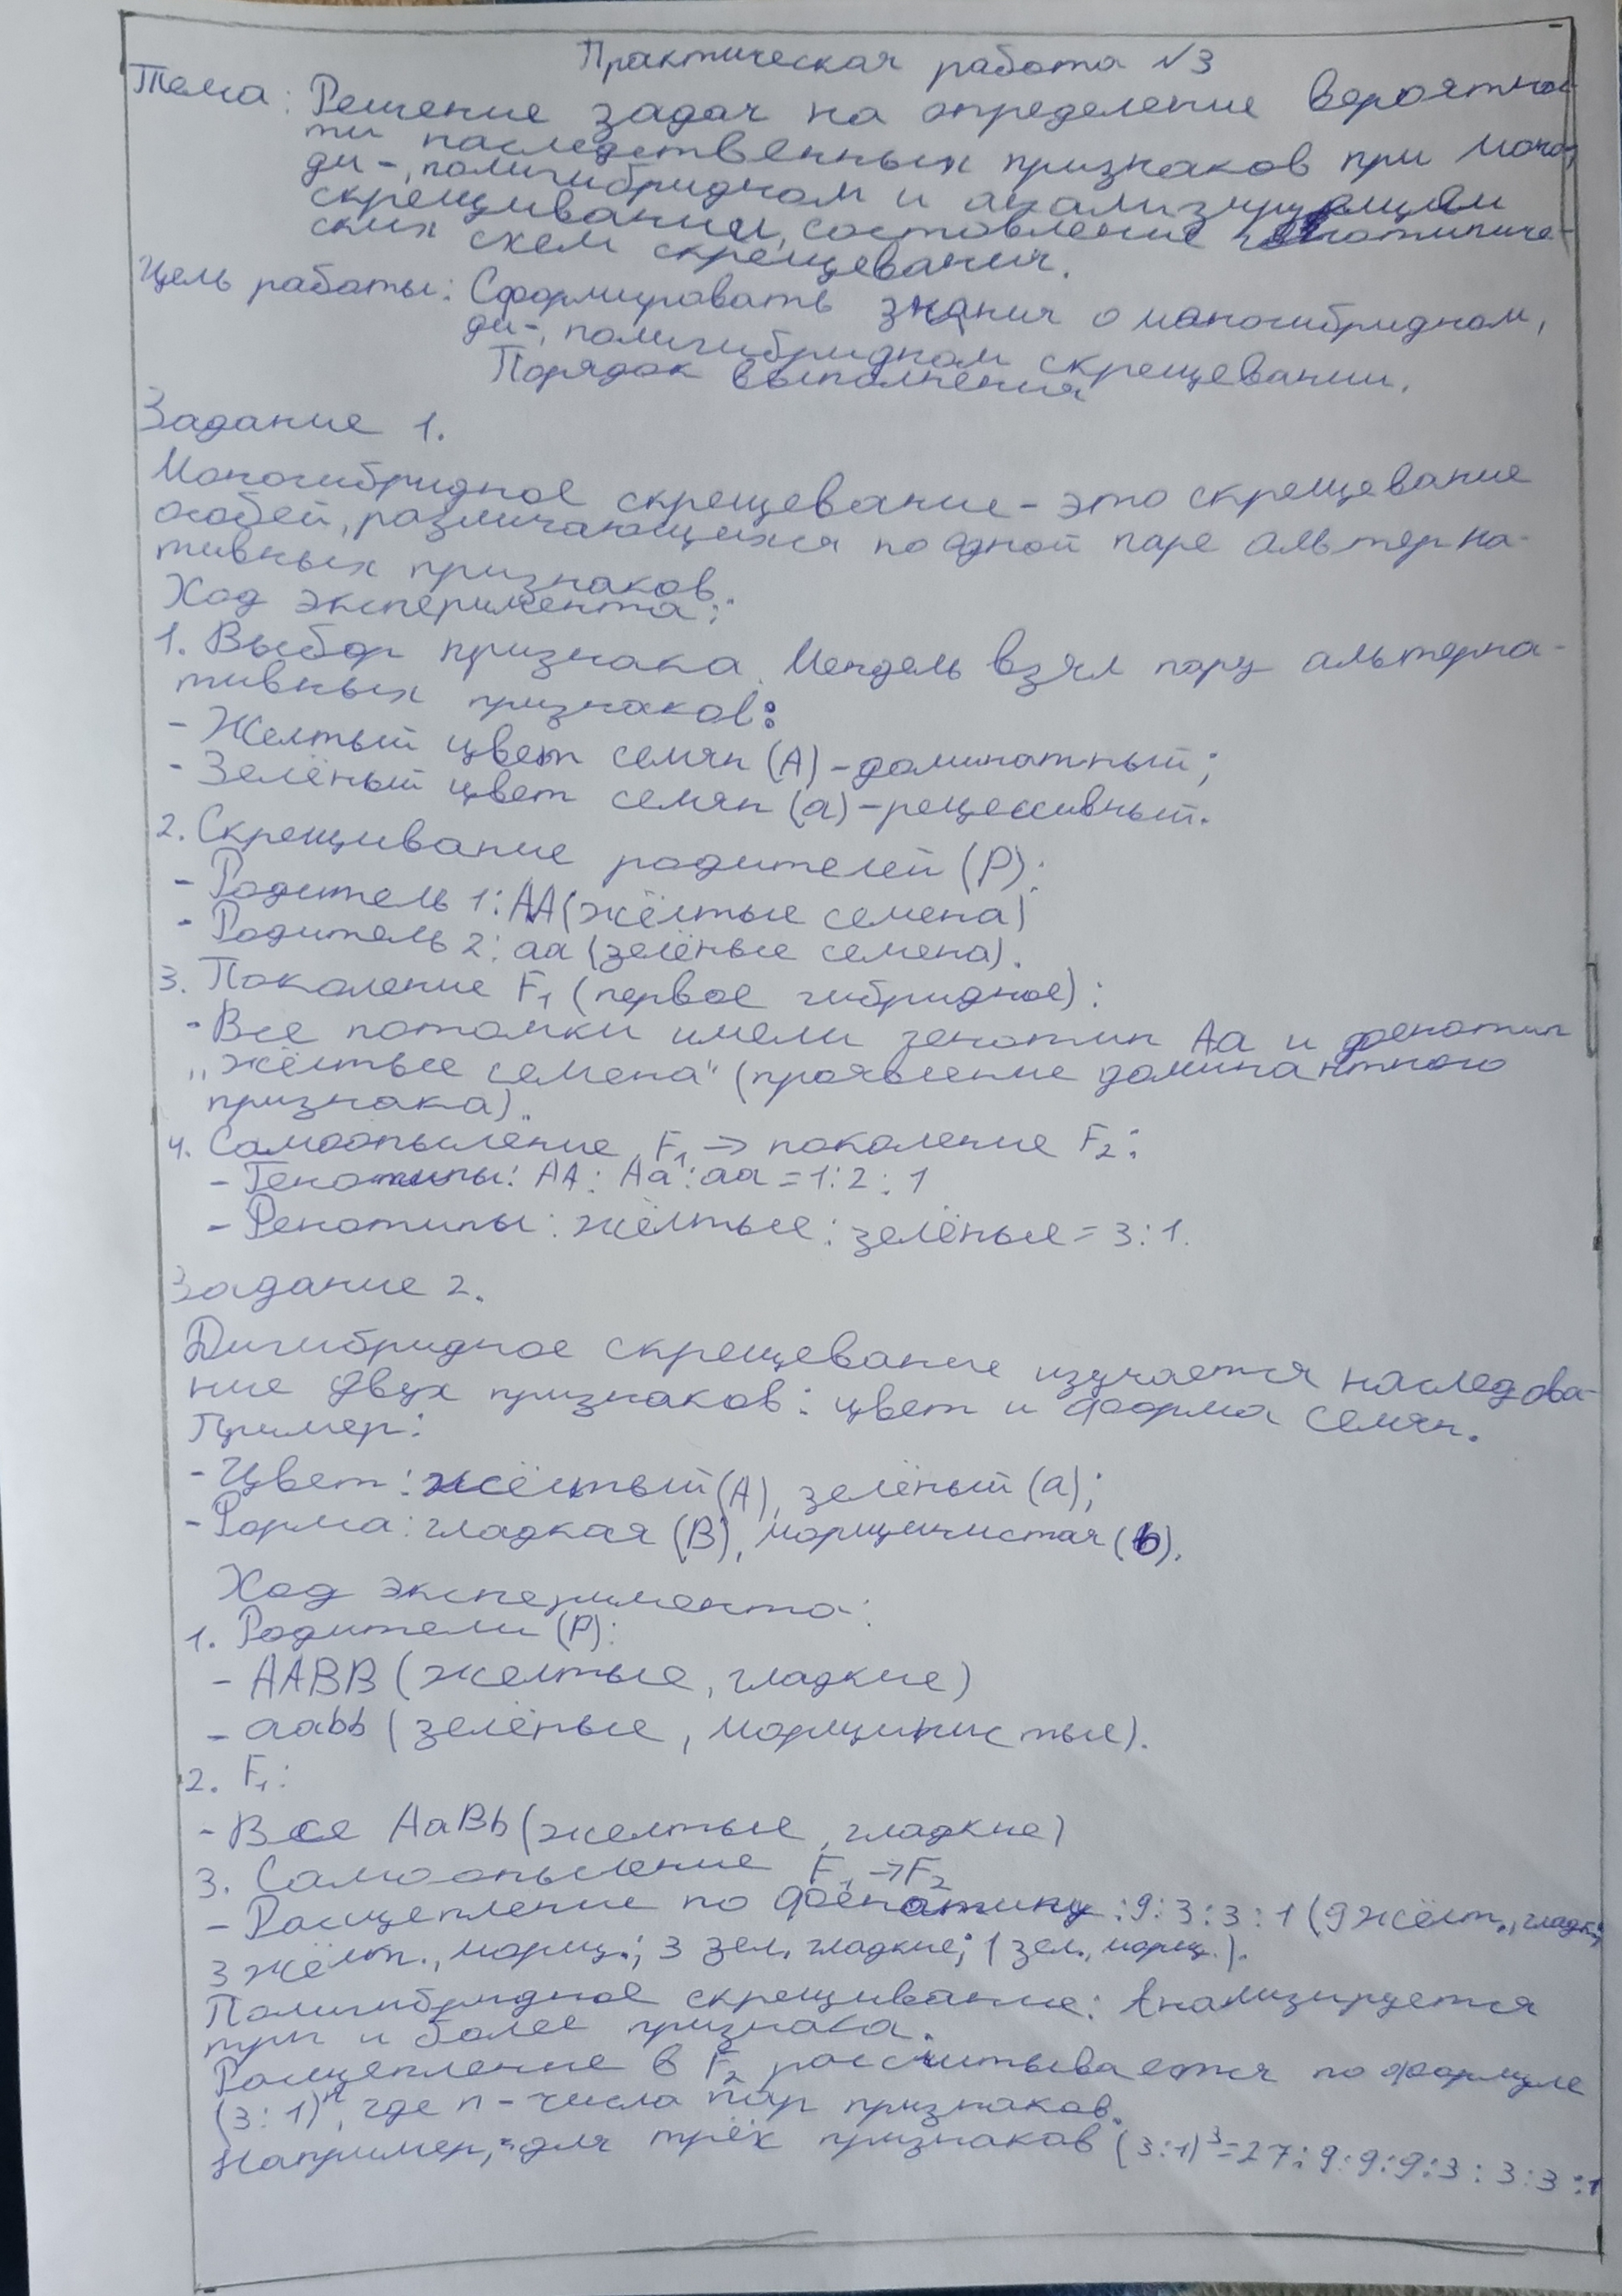 Практическая работа №3
Тема: Решение задач на определение вероятнос-
ти наследственных признаков при моно-,
ди-, полигибридном и анализирующем
скрещивании, составление генотипиче-
ских схем скрещевания.
Цель работы: Сформировать знания о моногибридном,
ди-, полигибридном скрещевании.
Порядок выполнения
Задание 1.
Моногибридное скрещевание - это скрещевание
особей, различающихся по одной паре альтерна-
тивных признаков.
Ход эксперимента:
1. Выбор признака. Мендель взял пару альтерна-
тивных признаков:
- Желтый цвет семян (А) - доминатный;
- Зелёный цвет семян (а) - рецессивный.
2. Скрещивание родителей (Р):
- Родитель 1: АА (жёлтые семена)
- Родитель 2: аа (зелёные семена).
3. Поколение F₁ (первое гибридное):
- Все потомки имели генотип Аа и фенотип
„жёлтые семена" (проявление доминантного
признака).
4. Самоопыление F₁ → поколение F₂:
- Генотипы: АА : Аа : аа = 1 : 2 : 1
- Фенотипы: жёлтые : зелёные = 3 : 1.
Задание 2.
Дигибридное скрещевание изучается наследова-
ние двух признаков: цвет и форма семян.
Пример:
- Цвет: жёлтый (А), зелёный (а);
- Форма: гладкая (В), морщинистая (b).
Ход эксперимента:
1. Родители (Р):
- ААВВ (желтые, гладкие)
- ааbb (зелёные, морщинистые).
2. F₁:
- Все АаВb (желтые, гладкие)
3. Самоопыление F₁ → F₂
- Расщепление по фенотипу: 9 : 3 : 3 : 1 (9 жёлт., гладк.;
3 жёлт., морщ.; 3 зел. гладкие; 1 зел., морщ.).
Полигибридное скрещивание: Анализируется
три и более признака.
Расщепление в F₂ рассчитывается по формуле
(3 : 1)ⁿ, где n - числа пар признаков.
Например, для трёх признаков (3:1)³ = 27 : 9 : 9 : 9 : 3 : 3 : 3 : 1